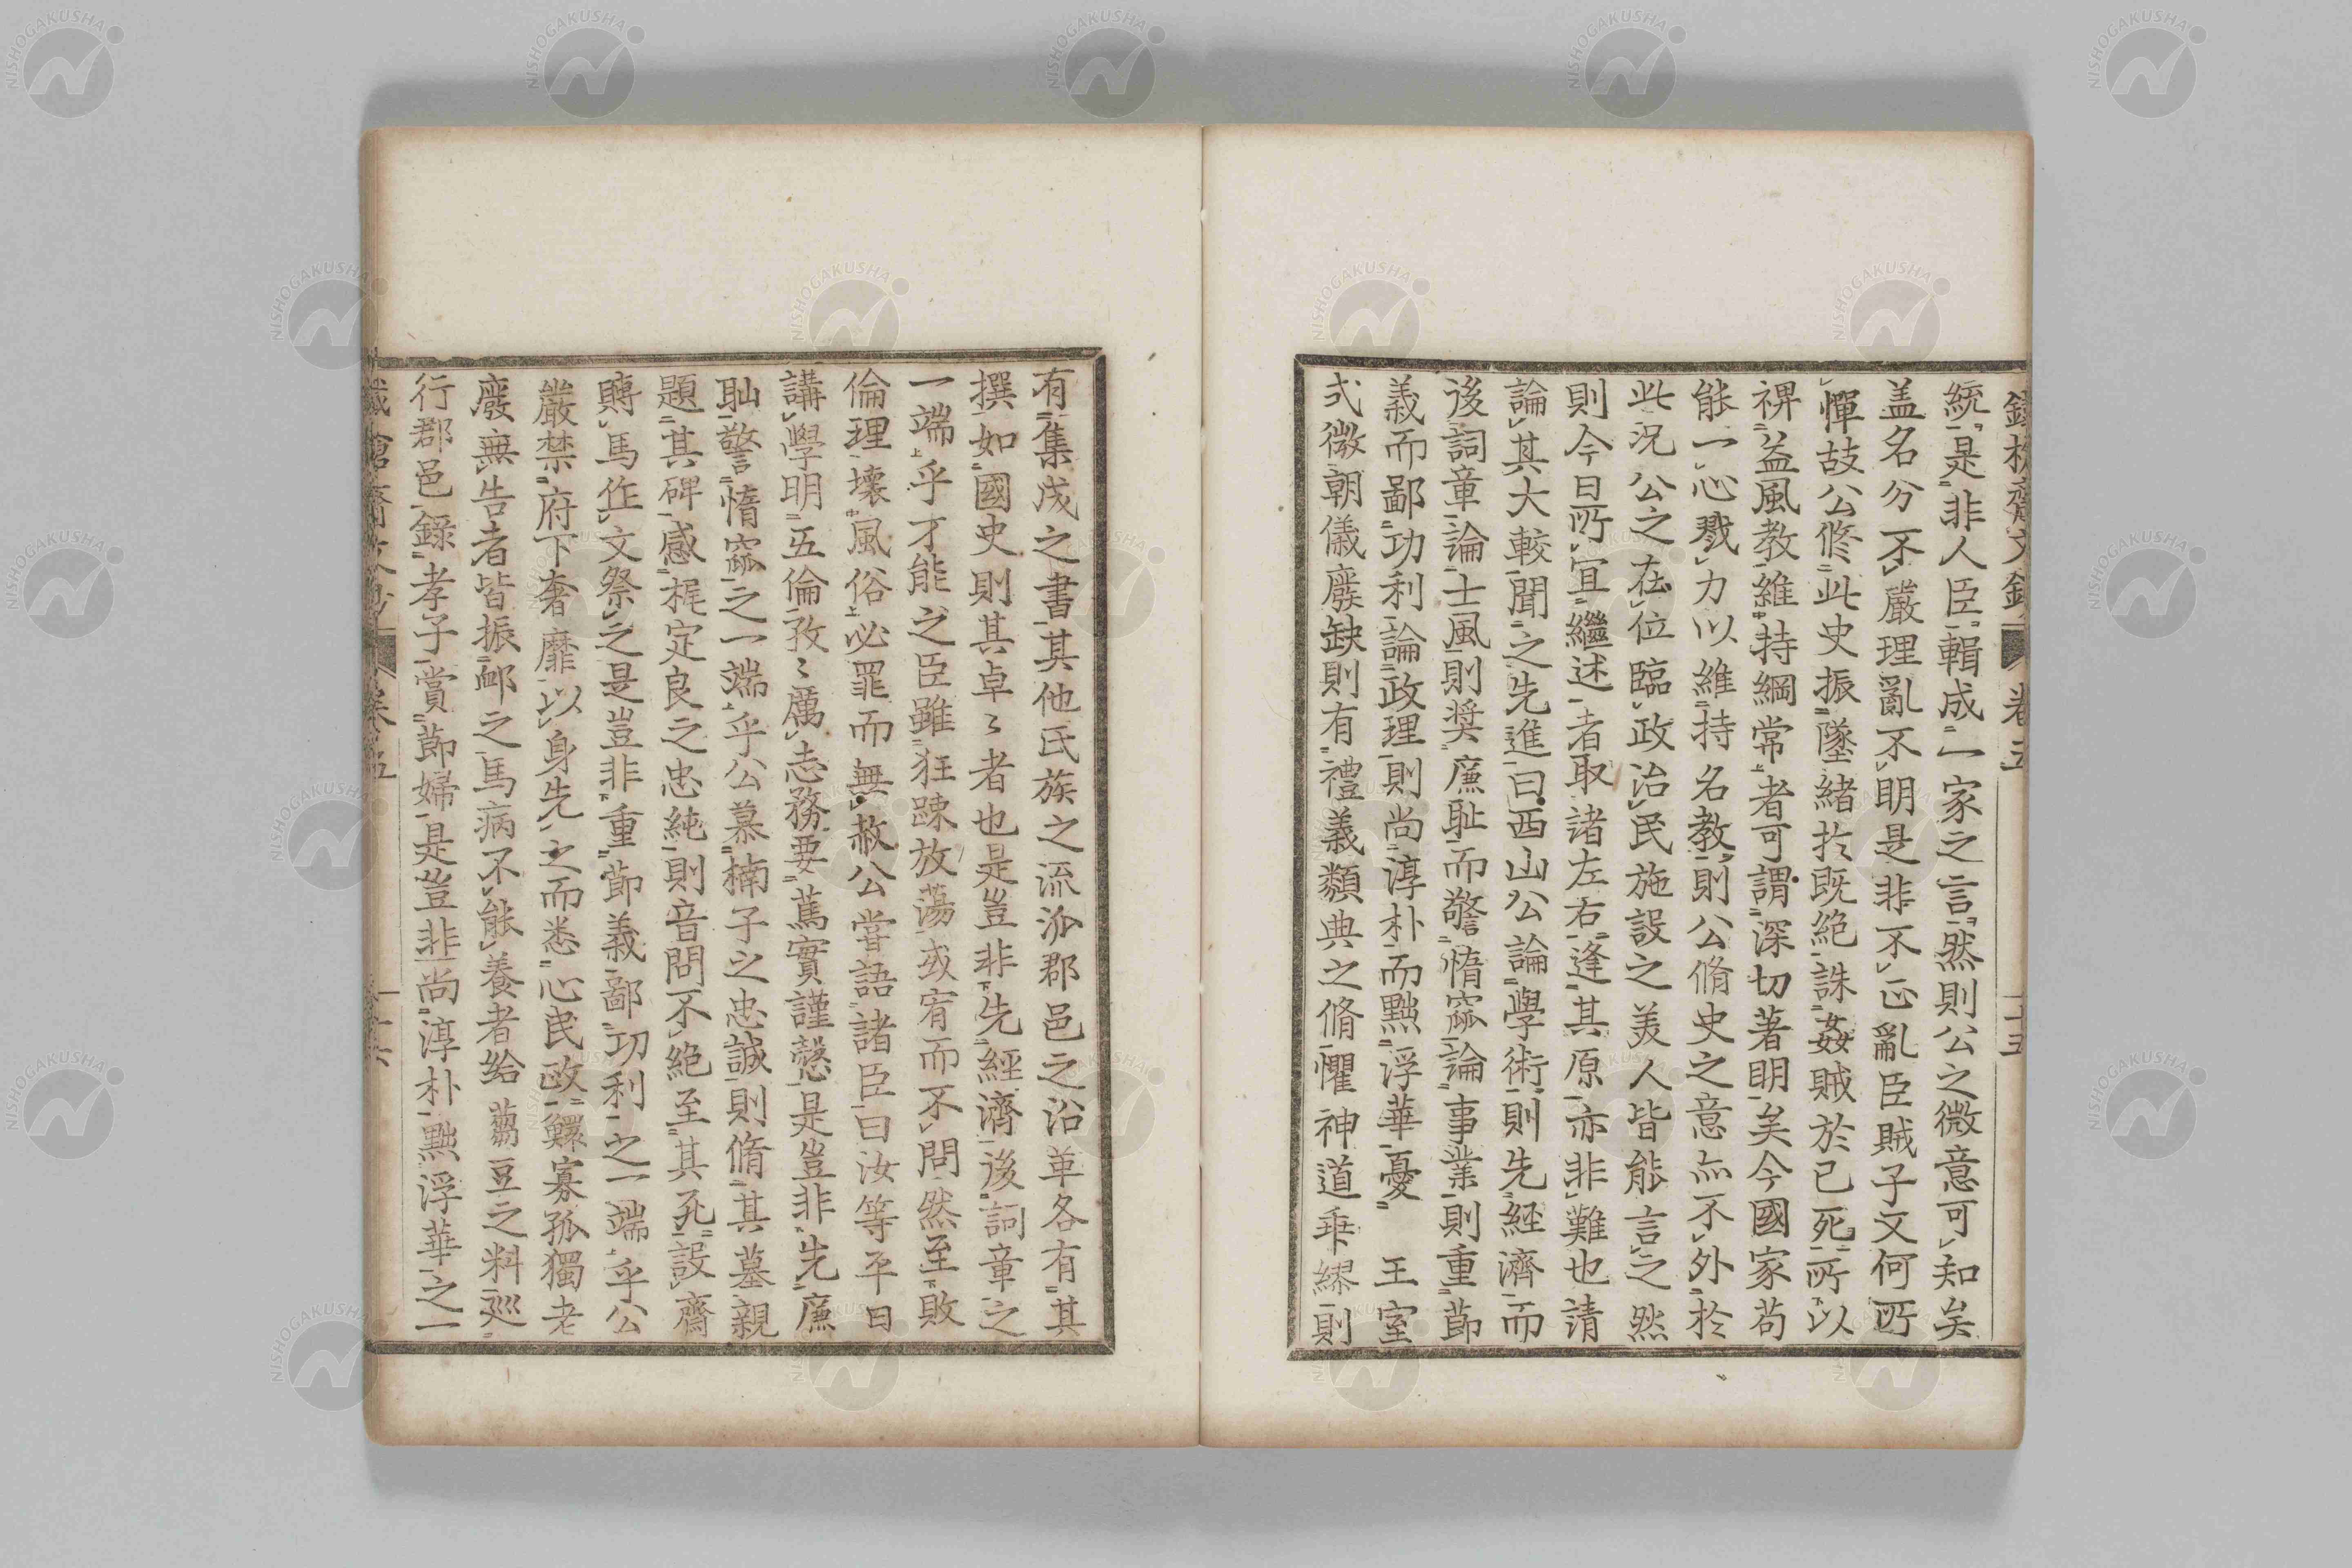 統是非人臣輯成一家之言然則公之微意可知矣
盖名分不嚴理亂不明是非不正亂臣賊子文何所
憚故公修此史振墜緒於既絶誅姦賊於已死所以
裨益風教維持綱常者可謂深切著明矣今國家苟
能一心戮力以維持名教則公脩史之意亦不外於
此況公之在位臨政治民施設之美人皆能言之然
則今日所宜繼述者取諸左右逢其原亦非難也請
論其大較聞之先進曰西山公論學術則先經濟而
後詞章論士風則奨廉耻而警惰窳論事業則重節
義而鄙功利論政理則尚淳朴而黜浮華憂 王室
弌微朝儀廢缺則有禮義類典之脩懼神道乖繆則
有集成之書其他氏族之流派郡邑之沿革各有其
撰如國史則其卓〻者也是豈非先經濟後詞章之
一端乎才能之臣雖狂踈放蕩或宥而不問然至敗
倫理壞風俗必罪而無赦公嘗語諸臣曰汝等平日
講學明五倫孜〻厲志務要篤實謹愨是豈非先廉
耻警惰窳之一端乎公慕楠子之忠誠則脩其墓親
題其碑感梶定良之忠純則音問不絶至其死設齋
賻馬作文祭之是豈非重節義鄙功利之一端乎公
嚴禁府下奢靡以身先之而悉心民政鰥寡孤獨老
廢無告者皆振卹之馬病不能養者給蒭豆之料巡
行郡邑錄孝子賞節婦是豈非尚淳朴黜浮華之一
卷五
NISHOGAKUSHA